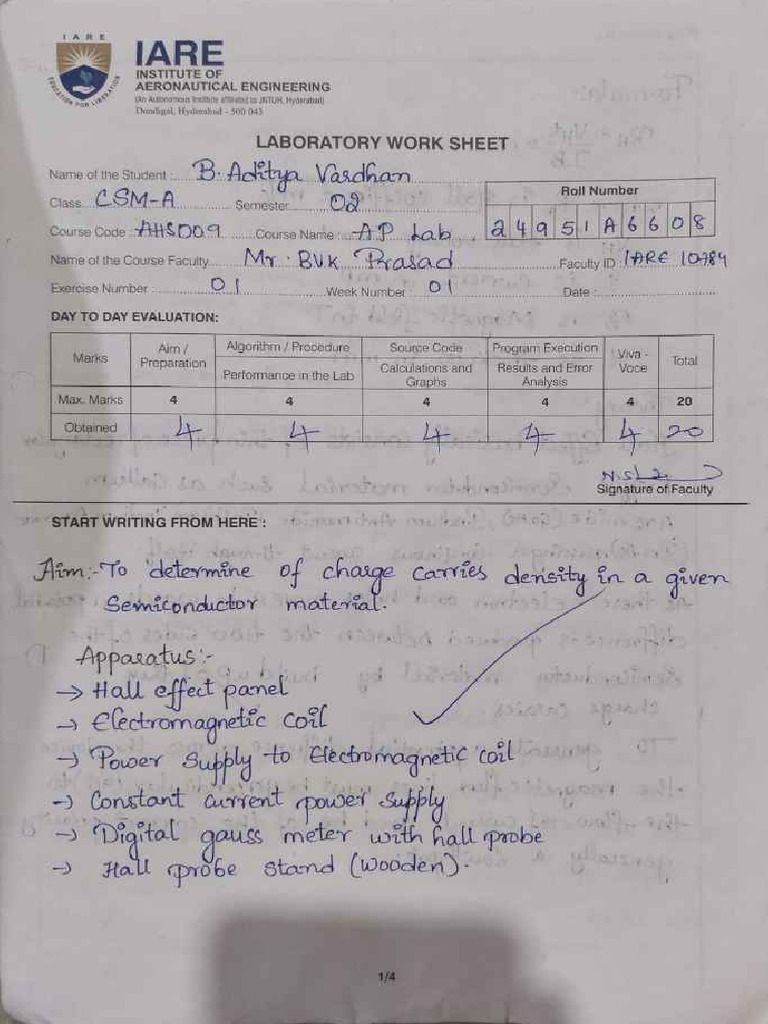 IARE
EDUCATION FOR LIBERATION
IARE
INSTITUTE OF
AERONAUTICAL ENGINEERING
(An Autonomous Institute affiliated to JNTUH, Hyderabad)
Dundigal, Hyderabad - 500 043
LABORATORY WORK SHEET
Name of the Student : B. Aditya Vardhan
Class CSM-A Semester 02 Roll Number
Course Code : AHS009 Course Name : AP Lab 24951A6608
Name of the Course Faculty Mr. BVK Prasad Faculty ID : IARE 10784
Exercise Number : 01 Week Number : 01 Date :
DAY TO DAY EVALUATION:
Marks Aim / Preparation Algorithm / Procedure Source Code Program Execution Viva - Voce Total
Performance in the Lab Calculations and Graphs Results and Error Analysis
Max. Marks 4 4 4 4 4 20
Obtained 4 4 4 4 4 20
Signature of Faculty
START WRITING FROM HERE :
Aim:- To determine of charge carries density in a given
Semiconductor material.
Apparatus:-
→ Hall effect panel
→ Electromagnetic coil
→ Power Supply to Electromagnetic coil
→ Constant current power supply
→ Digital gauss meter with hall probe
→ Hall probe stand (wooden).
1/4